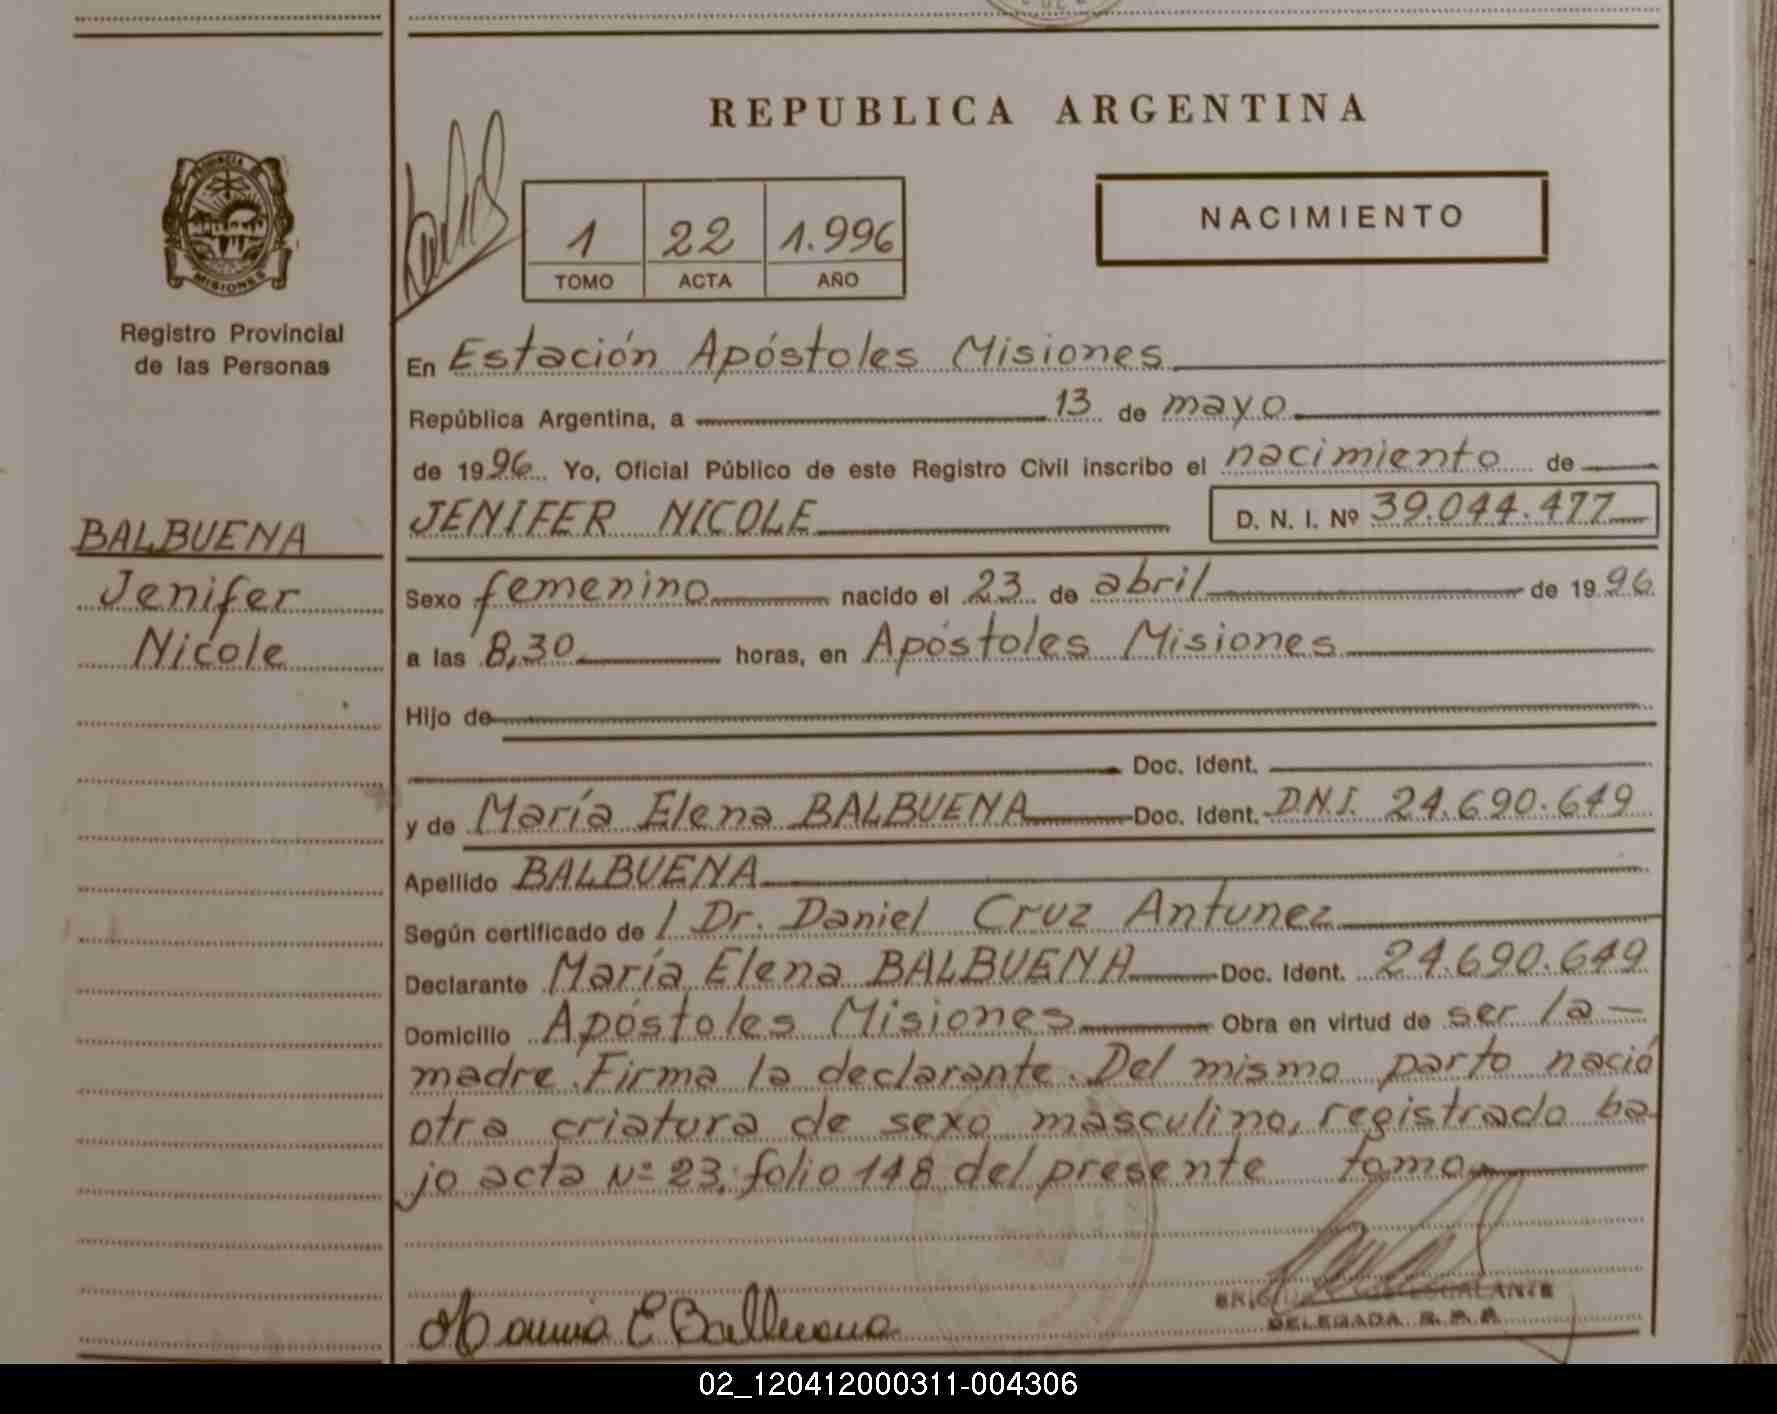 REPUBLICA ARGENTINA
PROVINCIA DE
MISIONES
Registro Provincial
de las Personas
1 22 1.996
TOMO ACTA AÑO
NACIMIENTO
En Estación Apóstoles Misiones
República Argentina, a 13 de mayo
de 1996 Yo, Oficial Público de este Registro Civil inscribo el nacimiento de
JENIFER NICOLE D. N. I. Nº 39.044.477
BALBUENA
Jenifer
Nicole
Sexo femenino nacido el 23 de abril de 1996
a las 8,30 horas, en Apóstoles Misiones
Hijo de
Doc. Ident.
y de María Elena BALBUENA Doc. Ident. D.N.I. 24.690.649
Apellido BALBUENA
Según certificado de / Dr. Daniel Cruz Antunez
Declarante María Elena BALBUENA Doc. Ident. 24.690.649
Domicilio Apóstoles Misiones Obra en virtud de ser la —
madre. Firma la declarante. Del mismo parto nació
otra criatura de sexo masculino, registrado ba-
jo acta Nº 23, folio 148 del presente tomo
DELEGADA R. P. P.
02_120412000311-004306